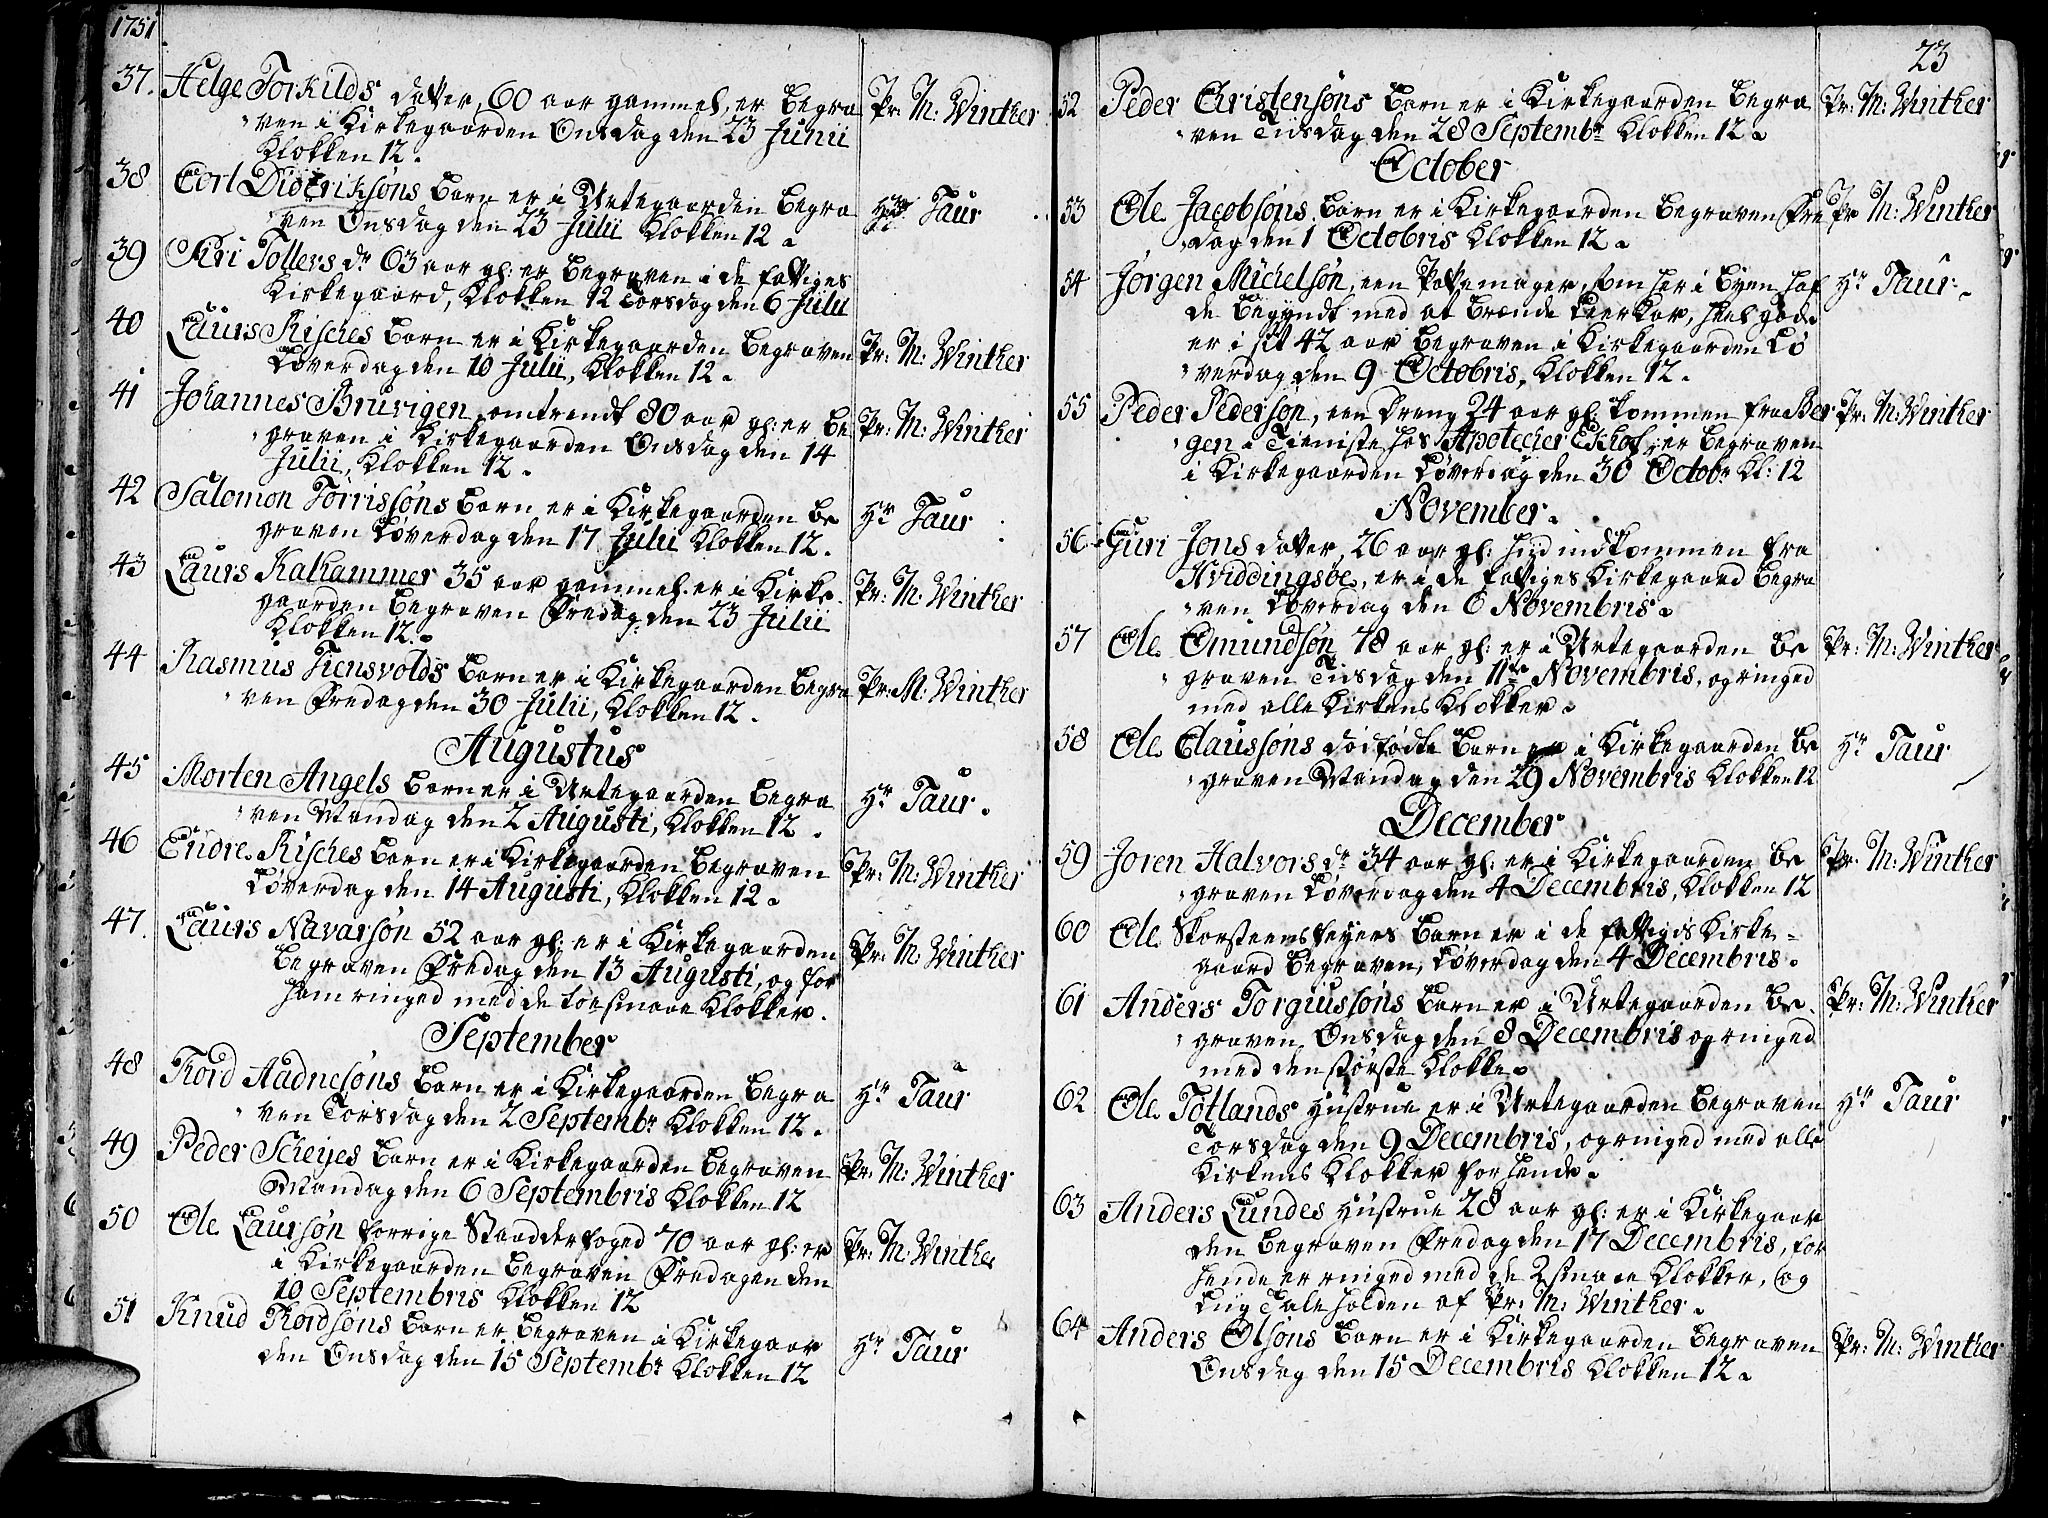 1751
37. Helge Torkilds datter, 60 aar gammel, er begra
ven i Kirkegaarden Onsdag den 23 Junii
Klokken 12.
Pr: M: Winther
38 Cort Dideriksøns barn er i Urtegaarden begra
ven Onsdag den 23 Julii Klokken 12.
Hr Taur
39 Siri Tollers dr 63 aar gl: er begraven i de fattiges
Kirkegaard, Klokken 12 Torsdag den 6 Julii
40 Laurs Risches barn er i Kirkegaarden begraven
Løverdag den 10 Julii, Klokken 12.
Pr: M: Winther
41 Johannes Bruvigen omtrendt 80 aar gl: er be
graven i Kirkegaarden Onsdag den 14
Julii, Klokken 12.
Pr: M: Winther
42 Salomon Torrissøns barn er i Kirkegaarden be
graven Løverdag den 17 Julii Klokken 12.
Hr Taur
43 Laurs Kalhammer 35 aar gammel er i Kirke
gaarden begraven Fredag den 23 Julii
Klokken 12.
Pr: M: Winther
44 Rasmus Tiensvolds barn er i Kirkegaarden begra
ven Fredag den 30 Julii, Klokken 12.
Pr: M. Winther
Augustus
45 Morten Angels barn er i Urtegaarden begra
ven Mandag den 2 Augusti, Klokken 12.
Hr Taur.
46 Endre Risches barn er i Kirkegaarden begraven
Løverdag den 14 Augusti, Klokken 12.
Pr: M: Winther
47. Laurs Navarsøn 52 aar gl: er i Kirkegaarden
begraven Fredag den 13 Augusti, og for
ham ringed med de toe smaae Klokker.
Pr: M: Winther
September
48 Tord Aadnesøns barn er i Kirkegaarden begra
ven Torsdag den 2 Septembr Klokken 12.
Hr Taur
49 Peder Scheyes barn er i Kirkegaarden begraven
Mandag den 6 Septembris Klokken 12
Pr: M: Winther
50 Ole Laursøn forrige Stodderfoged 70 aar gl: er
i Kirkegaarden begraven Fredagen den
10 Septembris Klokken 12
Pr: M: Winther
51 Knud Tordsøns barn er begraven i Kirkegaar
den Onsdag den 15 Septembr Klokken 12
Hr Taur
23
52 Peder Christensøns barn er i Kirkegaarden begra
ven Tiisdag den 28 Septembr Klokken 12.
Pr: M: Winther
October
53 Ole Jacobsøns barn er i Kirkegaarden begraven Fre
dag den 1 Octobris Klokken 12.
Pr M: Winther
54 Jørgen Michelsøn, een Pottemager, som her i byen haf
de begyndt med at brænde Leerkar, heel gode
er i sit 42 aar begraven i Kirkegaarden Lø
verdag den 9 Octobris, Klokken 12.
Hr Taur
55 Peder Pedersøn, een Dreng 24 aar gl: kommen fra Ber
gen i Tieniste hos Apotecher Ekhof, er begraven
i Kirkegaarden Løverdag den 30 Octobr Kl: 12
Pr: M: Winther
November.
56 Guri Jons datter 26 aar gl: hid indkommen fra
Hviddingsøe, er i de fattiges Kirkegaard begra
ven Løverdag den 6 Novembris.
57 Ole Omundsøn 78 aar gl: er i Urtegaarden be
graven Tiisdag den 11te Novembris, og ringed
med alle Kirkens Klokker.
Pr: M: Winther
58 Ole Claussøns dødfødte barn er i Kirkegaarden be
graven Mandag den 29 Novembris Klokken 12
Hr Taur
December
59 Joren Halvors dr 34 aar gl: er i Kirkegaarden be
graven Løverdag den 4 Decembris, Klokken 12
Pr: M: Winther
60 Ole Skorsteensfeyers barn er i de fattigis Kirke-
gaard begraven, Løverdag den 4 Decembris.
61 Anders Torgiussøns barn er i Urtegaarden be
graven Onsdag den 8 Decembris og ringed
med den største Klokke.
Pr: M: Winther
62 Ole Totlands Hustrue er i Urtegaarden begraven
Torsdag den 9 Decembris, og ringed med alle
Kirkens Klokker for hende.
Hr Taur
63 Anders Lundes Hustrue 28 aar gl: er i Kirkegaar
den begraven Fredag den 17 Decembris, for
hende er ringed med de 2 smaae Klokker, og
Liig Tale holden af Pr: M: Winther.
64 Anders Olsøns barn er i Kirkegaarden begraven
Onsdag den 15 Decembris Klokken 12.
Pr: M: Winther